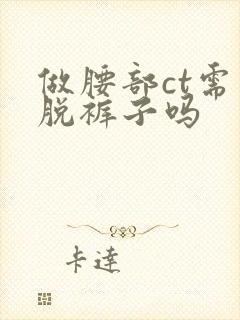 做腰部ct需
脱裤子吗
卡達